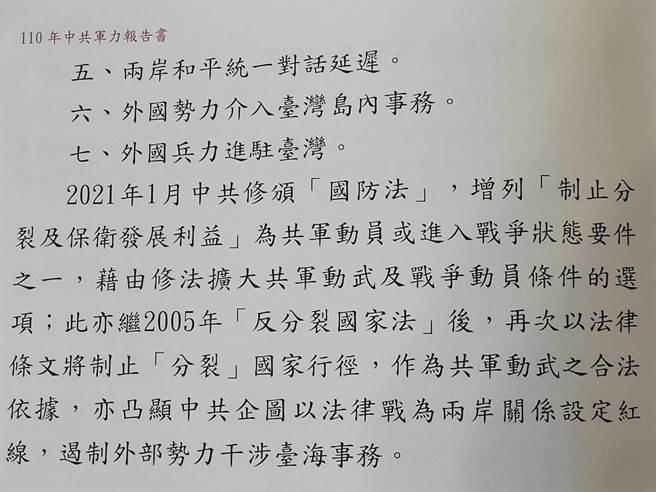 110 年中共軍力報告書
五、兩岸和平統一對話延遲。
六、外國勢力介入臺灣島內事務。
七、外國兵力進駐臺灣。
2021年1月中共修頒「國防法」，增列「制止分
裂及保衛發展利益」為共軍動員或進入戰爭狀態要件
之一，藉由修法擴大共軍動武及戰爭動員條件的選
項；此亦繼2005年「反分裂國家法」後，再次以法律
條文將制止「分裂」國家行徑，作為共軍動武之合法
依據，亦凸顯中共企圖以法律戰為兩岸關係設定紅
線，遏制外部勢力干涉臺海事務。